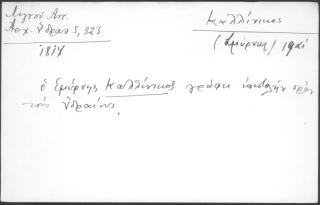 Λιγνού Αντ.
Αρχ. Ύδρας 5, 323
Καλλίνικος
(Σμύρνης)
1814
ὁ Σμύρνης Καλλίνικος γράφει ἐπιστολήν πρὸς
τούς Ὑδραίους.